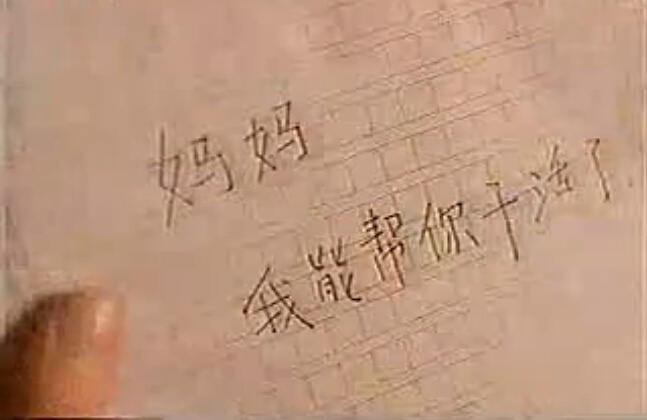 妈妈
我能帮你干活了